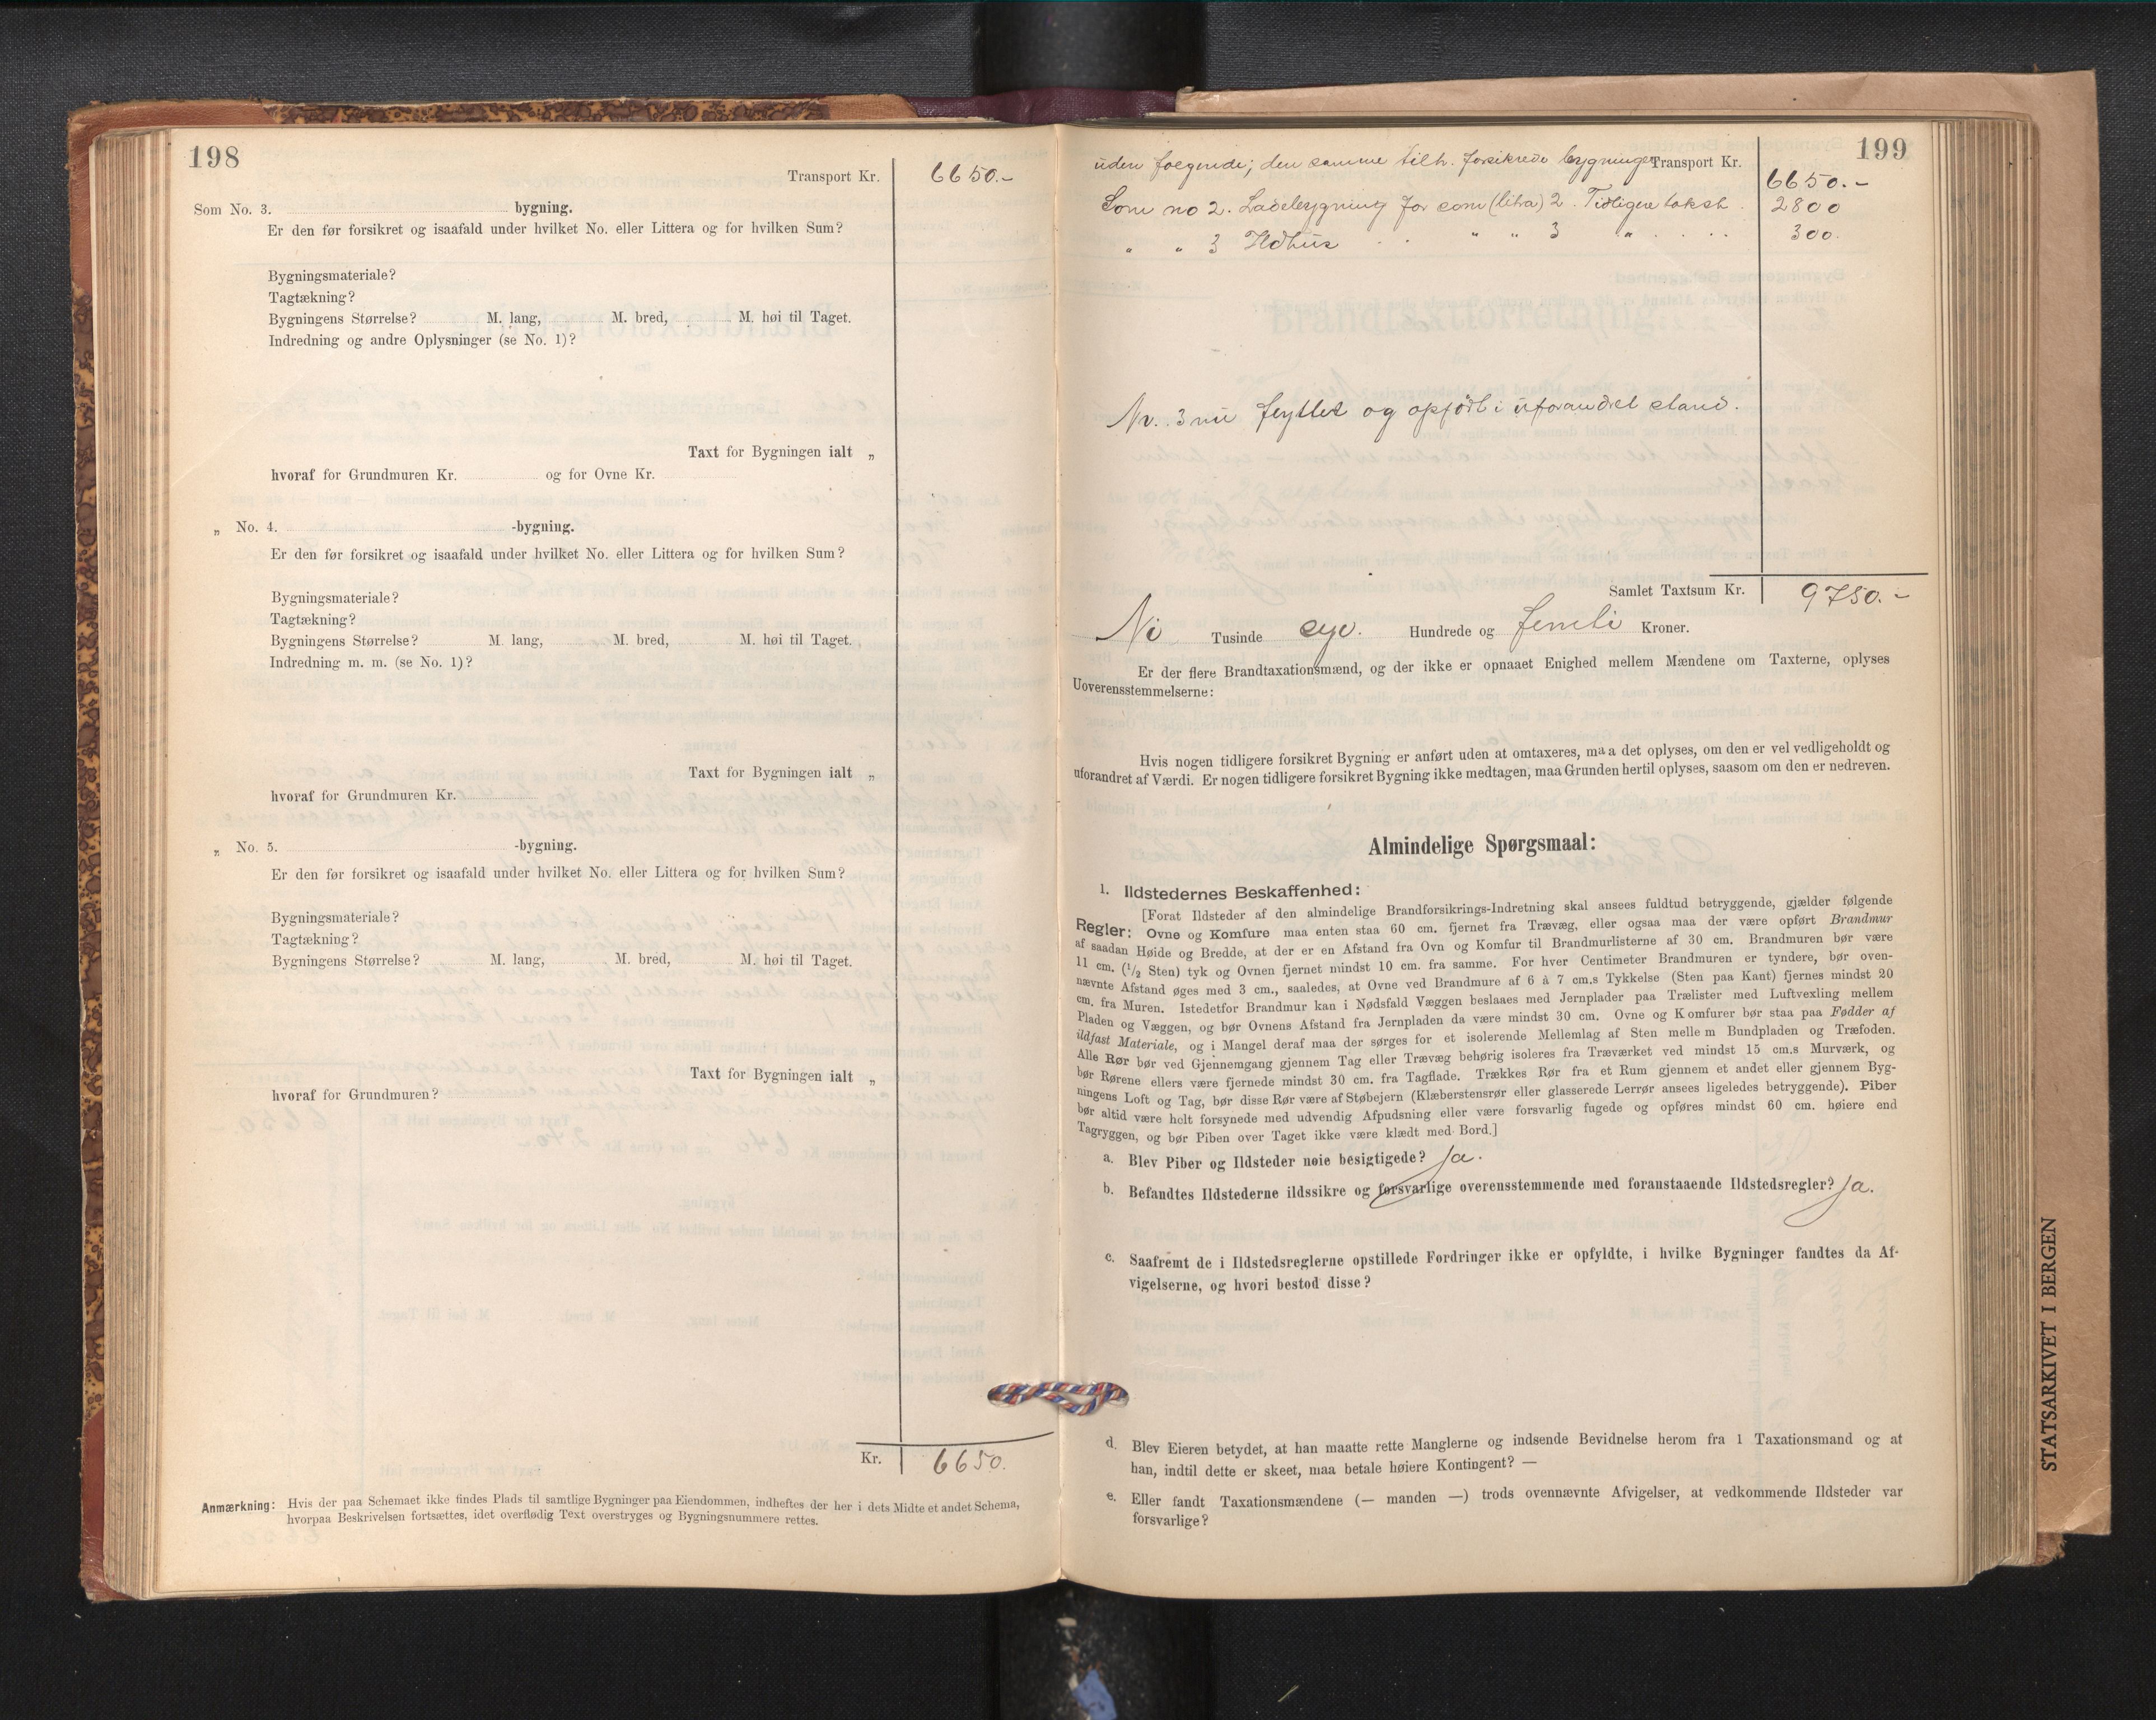 198
Transport Kr. 6650.-
Som No. 3. bygning.
Er den før forsikret og isaafald under hvilket No. eller Littera og for hvilken Sum?
Bygningsmateriale?
Tagtækning?
Bygningens Størrelse? M. lang, M. bred, M. høi til Taget.
Indredning og andre Oplysninger (se No. 1)?
Taxt for Bygningen ialt „
hvoraf for Grundmuren Kr. og for Ovne Kr.
„ No. 4. -bygning.
Er den før forsikret og isaafald under hvilket No. eller Littera og for hvilken Sum?
Bygningsmateriale?
Tagtækning?
Bygningens Størrelse? M. lang, M. bred, M. høi til Taget.
Indredning m. m. (se No. 1)?
Taxt for Bygningen ialt „
hvoraf for Grundmuren Kr.
„ No. 5. -bygning.
Er den før forsikret og isaafald under hvilket No. eller Littera og for hvilken Sum?
Bygningsmateriale?
Tagtækning?
Bygningens Størrelse? M. lang, M. bred, M. høi til Taget.
Taxt for Bygningen ialt „
hvoraf for Grundmuren?
Kr. 6650.
Anmærkning: Hvis der paa Schemaet ikke findes Plads til samtlige Bygninger paa Eiendommen, indheftes der her i dets Midte et andet Schema,
hvorpaa Beskrivelsen fortsættes, idet overflødig Text overstryges og Bygningsnummere rettes.
199
uden følgende; den samme tilh. forsikrede bygninger Transport Kr. 6650.-
Som no 2. Ladebygning før som (litra) 2. Tidligere takst. 2800
" " 3 Ildhus . . " " 3 " . . . . 300.
Nr. 3 nu flyttet og opført i uforandret stand.
Samlet Taxtsum Kr. 9750.-
Ni Tusinde syv. Hundrede og femti Kroner.
Er der flere Brandtaxationsmænd, og der ikke er opnaaet Enighed mellem Mændene om Taxterne, oplyses
Uoverensstemmelserne:
Hvis nogen tidligere forsikret Bygning er anført uden at omtaxeres, maa det oplyses, om den er vel vedligeholdt og
uforandret af Værdi. Er nogen tidligere forsikret Bygning ikke medtagen, maa Grunden hertil oplyses, saasom om den er nedreven.
Almindelige Spørgsmaal:
1. Ildstedernes Beskaffenhed:
[Forat Ildsteder af den almindelige Brandforsikrings-Indretning skal ansees fuldtud betryggende, gjælder følgende
Regler: Ovne og Komfure maa enten staa 60 cm. fjernet fra Trævæg, eller ogsaa maa der være opført Brandmur
af saadan Høide og Bredde, at der er en Afstand fra Ovn og Komfur til Brandmurlisterne af 30 cm. Brandmuren bør være
11 cm. (1/2 Sten) tyk og Ovnen fjernet mindst 10 cm. fra samme. For hver Centimeter Brandmuren er tyndere, bør oven-
nævnte Afstand øges med 3 cm., saaledes, at Ovne ved Brandmure af 6 à 7 cm.s Tykkelse (Sten paa Kant) fjernes mindst 20
cm. fra Muren. Istedetfor Brandmur kan i Nødsfald Væggen beslaaes med Jernplader paa Trælister med Luftvexling mellem
Pladen og Væggen, og bør Ovnens Afstand fra Jernpladen da være mindst 30 cm. Ovne og Komfurer bør staa paa Fødder af
ildfast Materiale, og i Mangel deraf maa der sørges for et isolerende Mellemlag af Sten mellem Bundpladen og Træfoden.
Alle Rør bør ved Gjennemgang gjennem Tag eller Trævæg behørig isoleres fra Træværket ved mindst 15 cm.s Murværk, og
bør Rørene ellers være fjernede mindst 30 cm. fra Tagflade. Trækkes Rør fra et Rum gjennem et andet eller gjennem Byg-
ningens Loft og Tag, bør disse Rør være af Støbejern (Klæberstensrør eller glasserede Lerrør ansees ligeledes betryggende). Piber
bør altid være helt forsynede med udvendig Afpudsning eller være forsvarlig fugede og opføres mindst 60 cm. høiere end
Tagryggen, og bør Piben over Taget ikke være klædt med Bord.]
a. Blev Piber og Ildsteder nøie besigtigede? Ja.
b. Befandtes Ildstederne ildssikre og forsvarlige overensstemmende med foranstaaende Ildstedsregler? Ja.
c. Saafremt de i Ildstedsreglerne opstillede Fordringer ikke er opfyldte, i hvilke Bygninger fandtes da Af-
vigelserne, og hvori bestod disse?
d. Blev Eieren betydet, at han maatte rette Manglerne og indsende Bevidnelse herom fra 1 Taxationsmand og at
han, indtil dette er skeet, maa betale høiere Kontingent? —
e. Eller fandt Taxationsmændene (— manden —) trods ovennævnte Afvigelser, at vedkommende Ildsteder var
forsvarlige?
STATSARKIVET I BERGEN